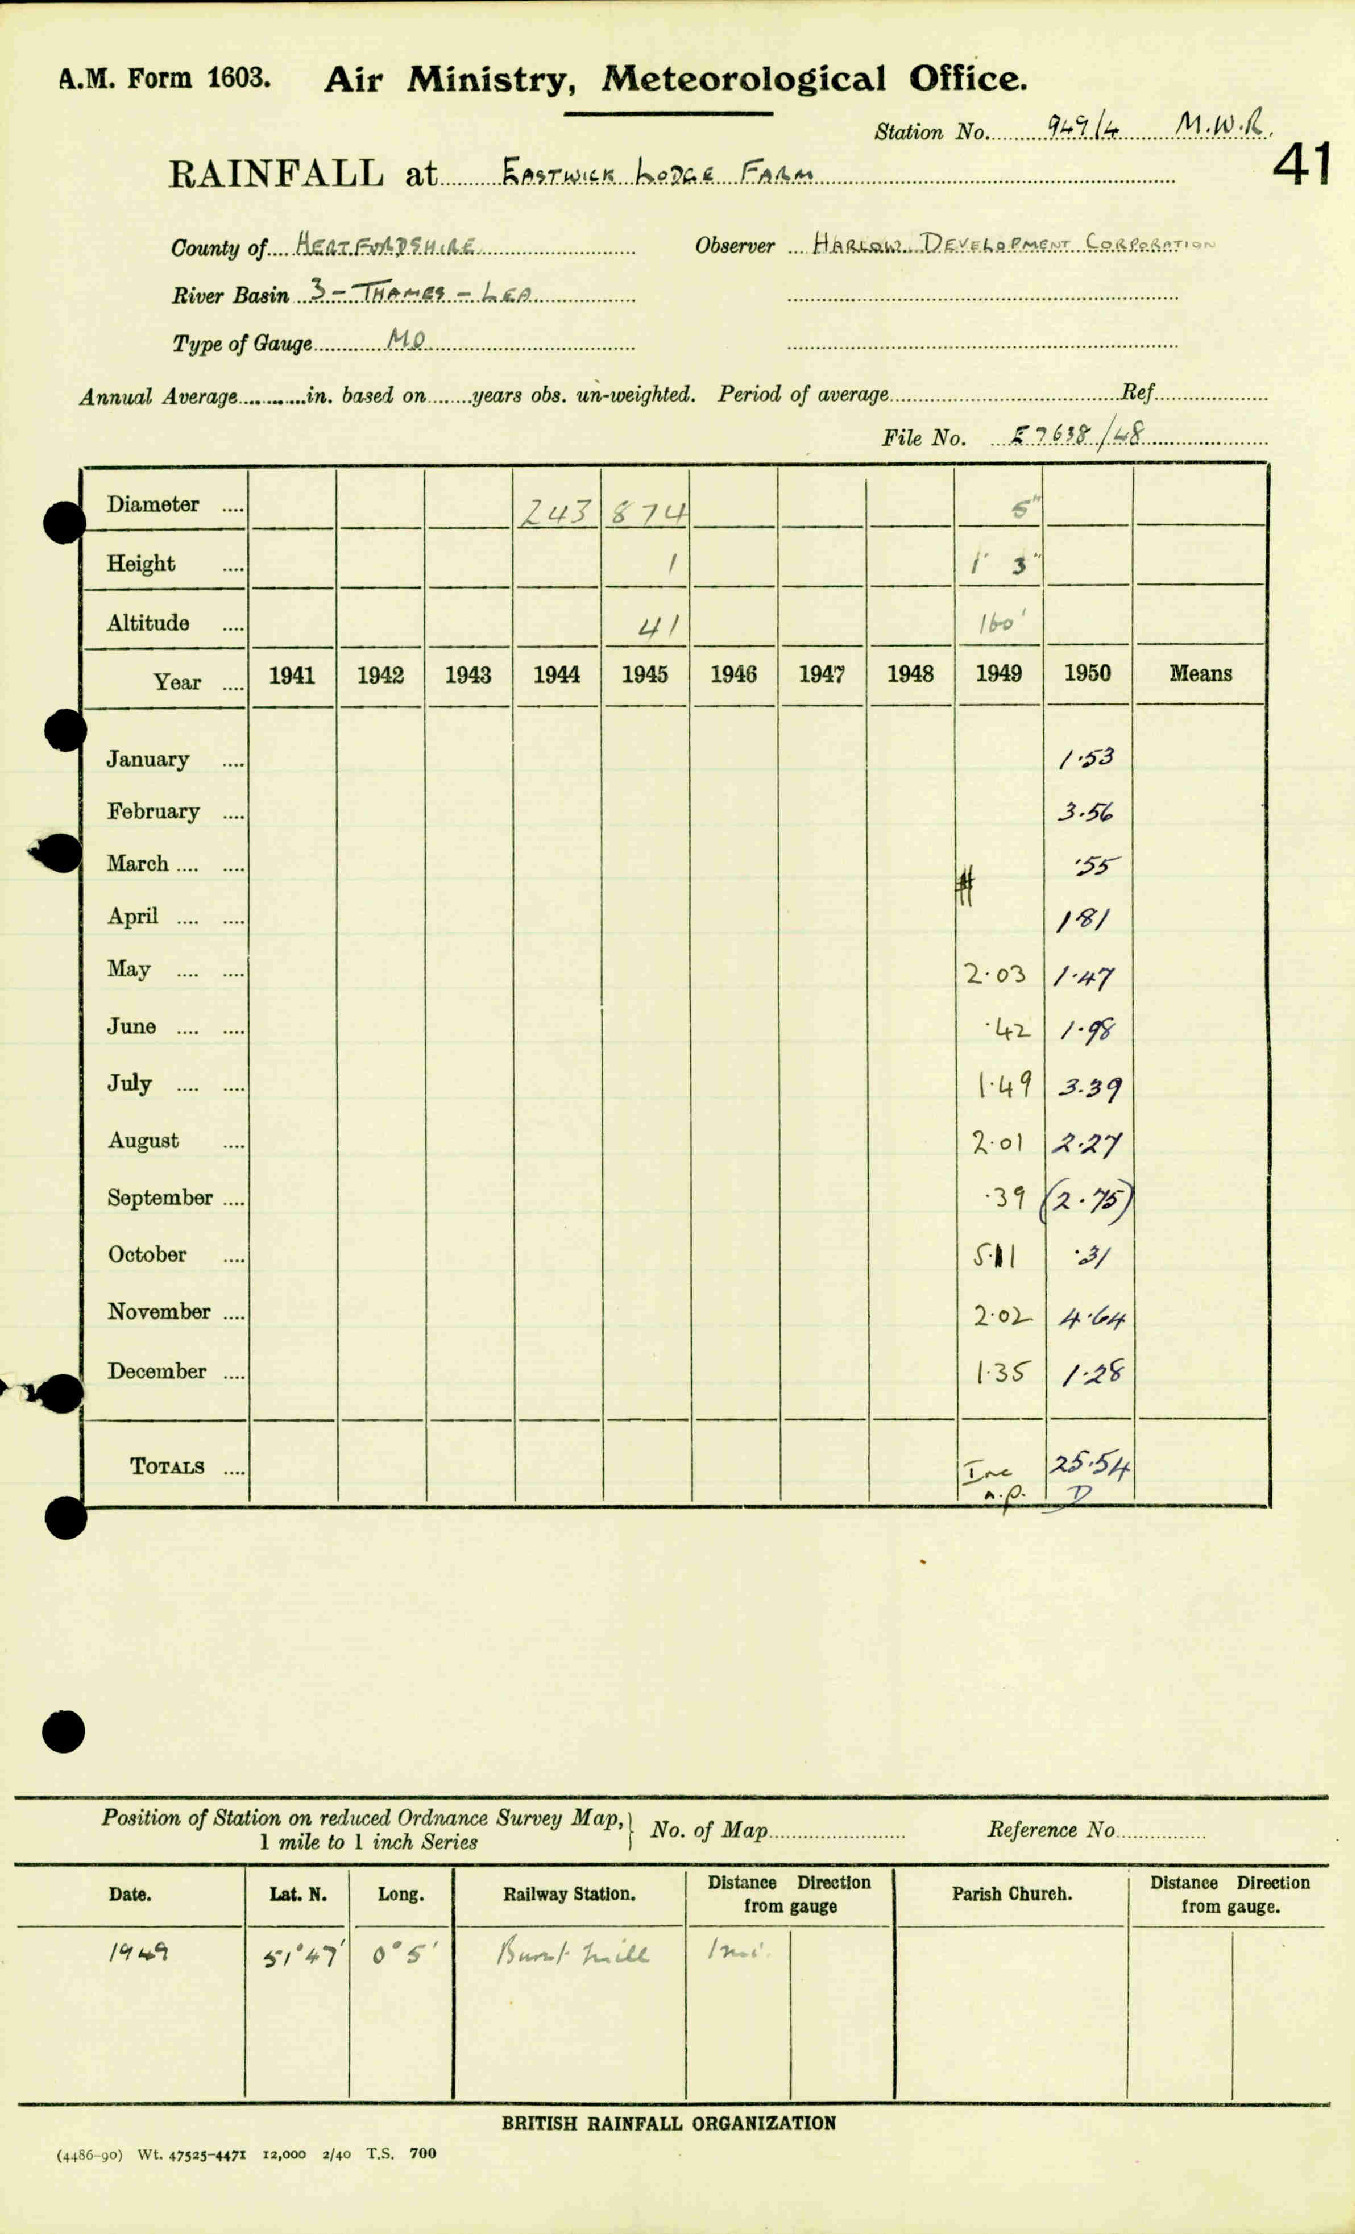 A.M. Form 1603. Air Ministry, Meteorological Office.
Station No. 949/4 M.W.R.
41
RAINFALL at EASTWICK LODGE FARM
County of HERTFORDSHIRE Observer HARLOW DEVELOPMENT CORPORATION
River Basin 3 - THAMES - LEA
Type of Gauge MO
Annual Average in. based on years obs. un-weighted. Period of average Ref
File No. E7638/48
Diameter 243 874 5"
Height 1 1' 3"
Altitude 41 160'
Year 1941 1942 1943 1944 1945 1946 1947 1948 1949 1950 Means
January 1.53
February 3.56
March .55
April 1.81
May 2.03 1.47
June .42 1.98
July 1.49 3.39
August 2.01 2.27
September .39 (2.75)
October 5.11 .31
November 2.02 4.64
December 1.35 1.28
TOTALS Inc 25.54
n.p. D
Position of Station on reduced Ordnance Survey Map, } No. of Map Reference No
1 mile to 1 inch Series
Date. Lat. N. Long. Railway Station. Distance Direction from gauge Parish Church. Distance Direction from gauge.
1949 51°47' 0°5' Burnt Mill 1 mi.
BRITISH RAINFALL ORGANIZATION
(4486-90) Wt. 47525-4471 12,000 2/40 T.S. 700